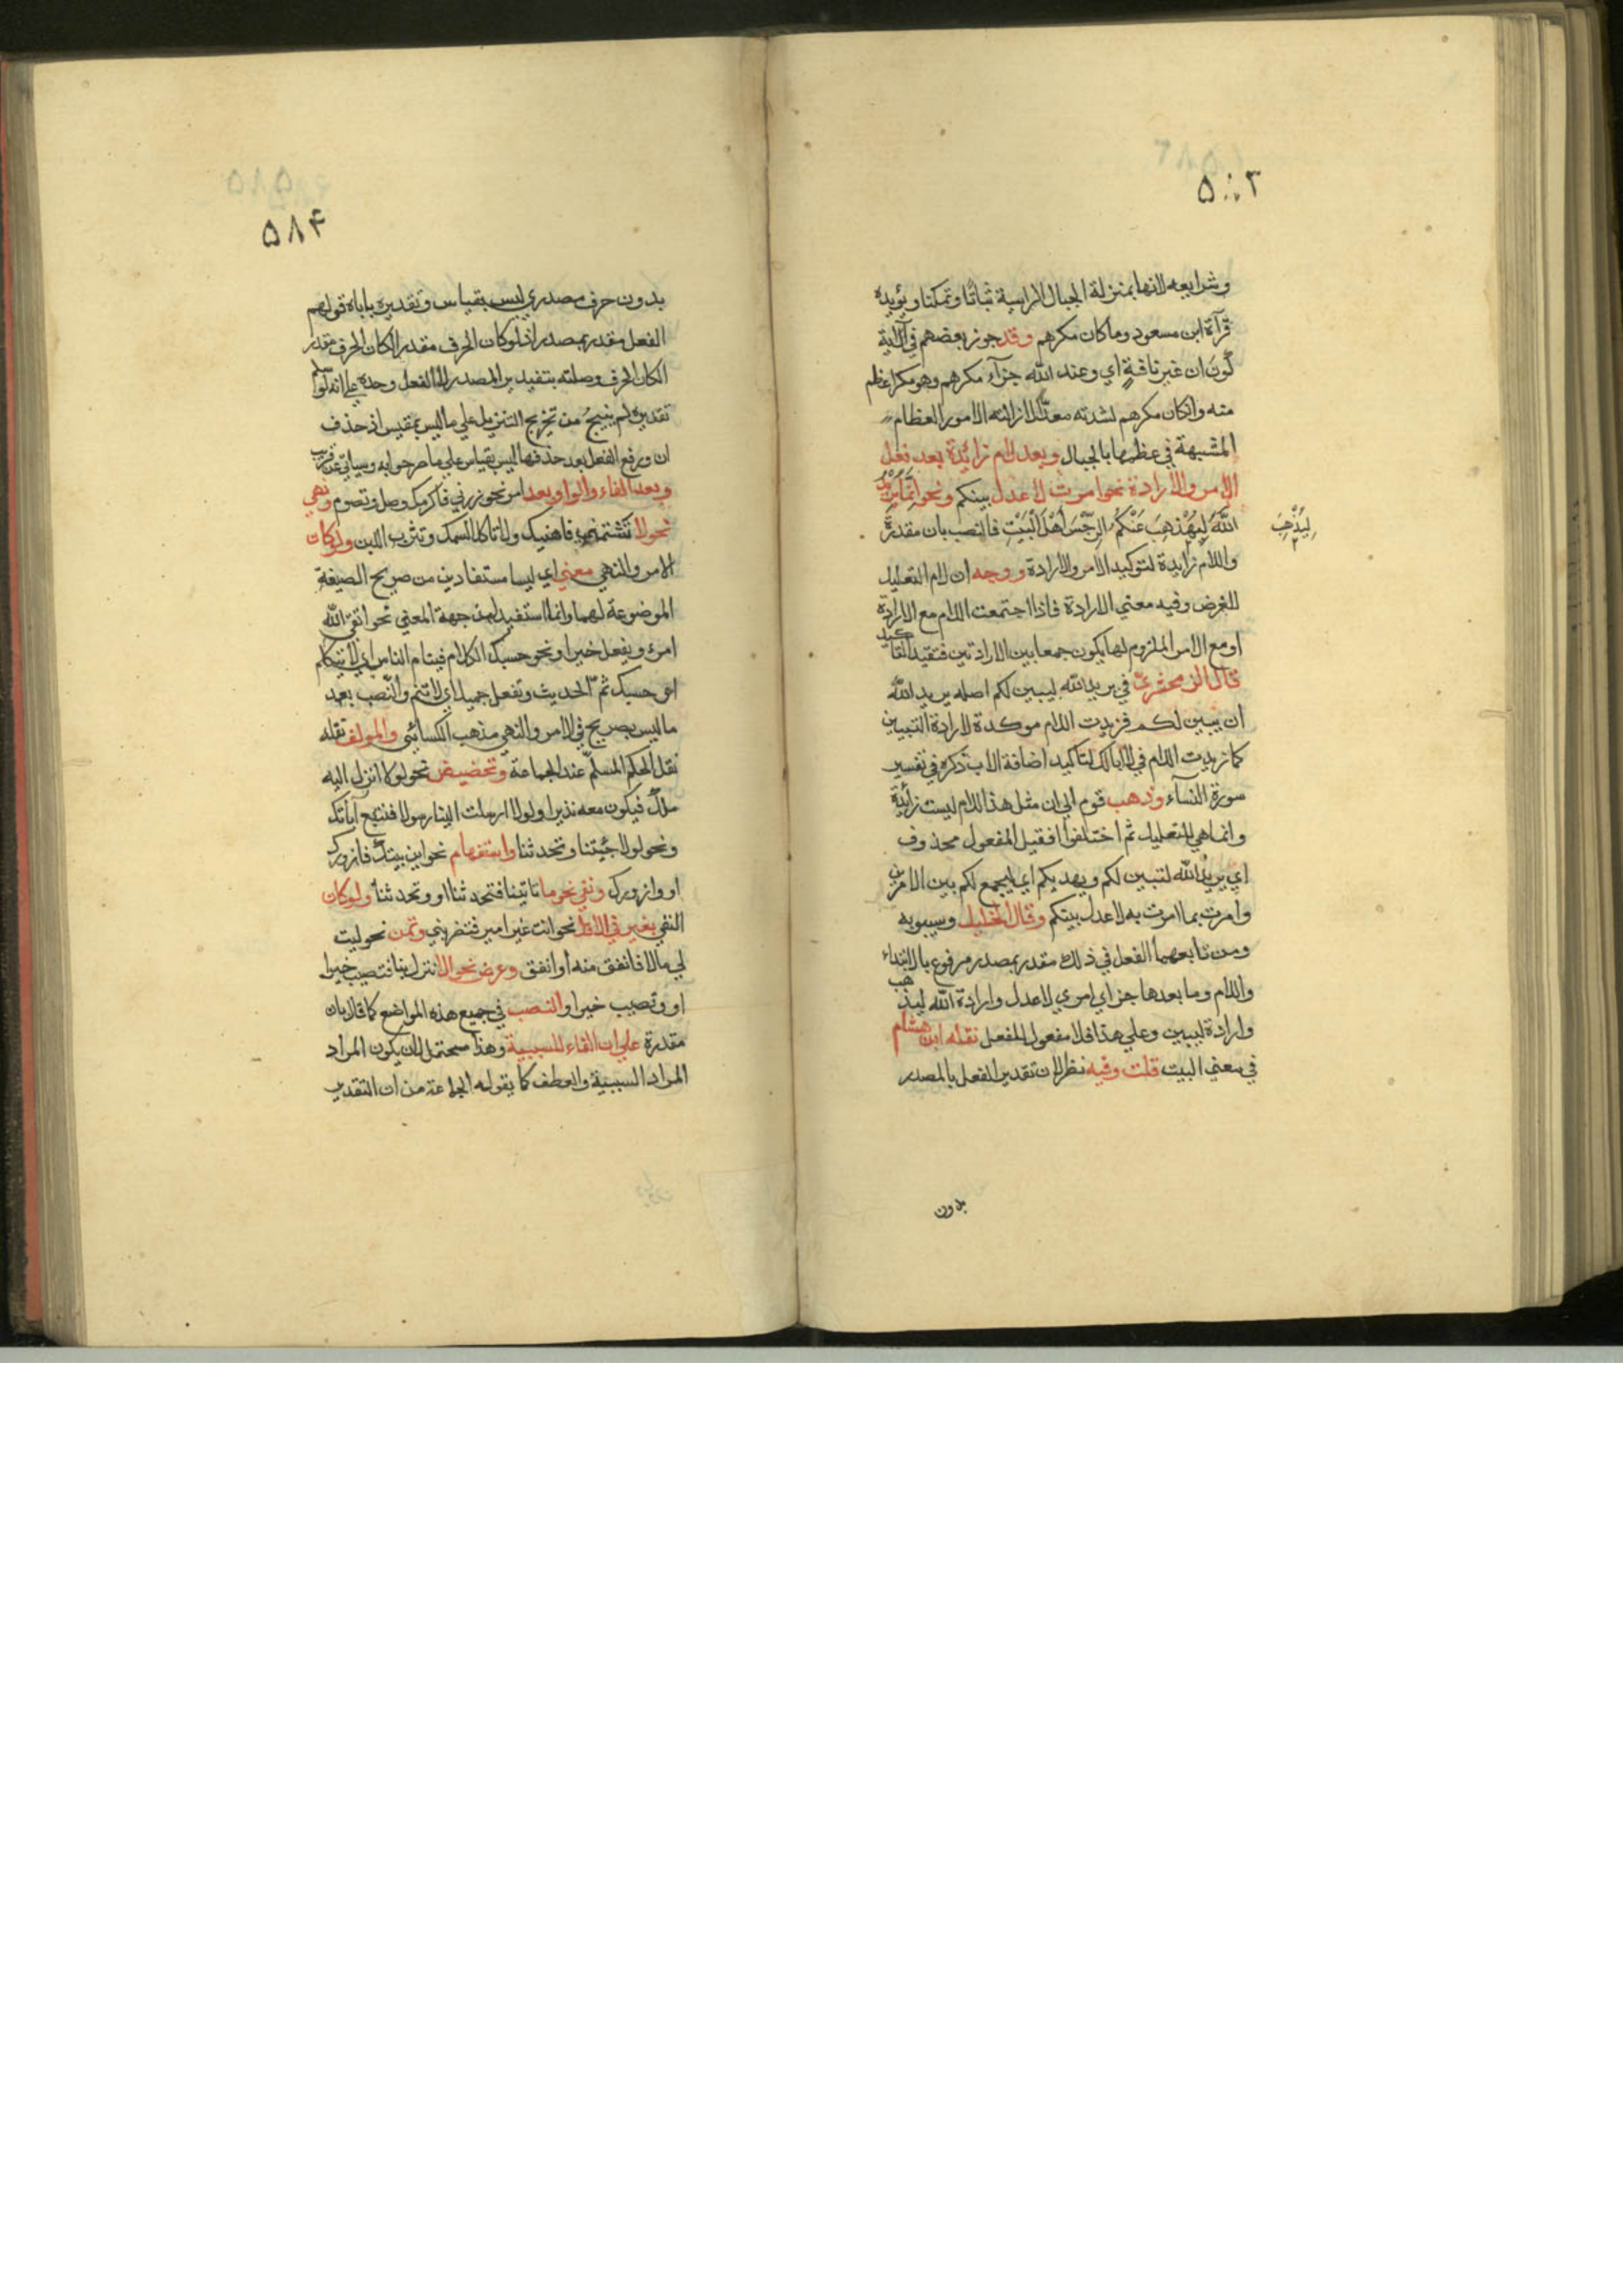 ۵۸۳
وشرايعه لانها بمنزلة الجبال الراسية ثباتا وتمكنا ويؤيده
قرآة ابن مسعود وما كان مكرهم وقد جوز بعضهم في الآية
كون ان غير نافية اي وعند الله جزآء مكرهم وهو مكر اعظم
منه وان كان مكرهم لشدته معدّا لازالته الامور العظام
المشبهة في عظمها بالجبال وبعد لام زائدة بعد فعل
الامر والارادة نحو امرت لاعدل بينكم ونحو انما يريد
الله ليذهب عنكم الرجس اهل البيت فالنصب بان مقدرة
ليذهب
واللام زايدة لتوكيد الامر والارادة ووجه ان لام التعليل
للغرض وفيه معني الارادة فاذا اجتمعت اللام مع الارادة
او مع الامر الملزوم لها يكون جمعا بين الارادتين فتفيد التاكيد
قال الزمخشري في يريد الله ليبين لكم اصله يريد الله
ان يبين لكم فزيدت اللام موكدة لارادة التبيين
كما زيدت اللام في لا ابا لك لتاكيد اضافة الاب ذكره في تفسير
سورة النسآء وذهب قوم الي ان مثل هذا اللام ليست زائدة
وانما هي للتعليل ثم اختلفوا فقيل المفعول محذوف
اي يريد الله لتبين لكم ويهديكم اي ليجمع لكم بين الامرين
وامرت بما امرت به لاعدل بينكم وقال الخليل وسيبويه
ومن تابعهما الفعل في ذلك مقدر بمصدر مرفوع بالابتداء
واللام وما بعدها خبر اي امري لاعدل وارادة الله ليذهب
وارادة ليبين وعلي هذا فلا مفعول للفعل نقله ابن هشام
في مغني البيت قلت وفيه نظر لان تقدير الفعل بالمصدر
بدون
۵۸۴
بدون حرف مصدري ليس بقياس وتقديره باباه قولهم
الفعل مقدر بمصدر اذ لو كان الحرف مقدر الكان الحرف مقدر
الكان الحرف وصلته بتقدير المصدر لا الفعل وحده علي انه لو سلم
تقديره لم ينبج من تخريج التنزيل علي ما ليس بمقيس اذ حذف
ان ورفع الفعل بعد حذفها ليس بقياس علي ما مر جوابه وسياتي عن قريب
وبعد الفاء والواو بعد امر نحو زرني فاكرمك وصل وتصوم ونهي
نحو لا تشتمني فاهنيك ولا تاكل السمك وتشرب اللبن ولو كان
الامر والنهي معني اي ليسا مستفادين من صريح الصيغة
الموضوعة لهما وانما استفيد لهن جهة المعني نحو اتقي الله
امرء ويفعل خيرا ونحو حسبك الكلام فينام الناس اي لا تتكلم
اعني حسبك ثم الحديث وتفعل جميلا اي لا تنم والنصب بعد
ما ليس بصريح في الامر والنهي مذهب الكسائي والمولف نقله
نقل الحكم المسلم عند الجماعة وتحضيض نحو لولا انزل اليه
ملك فيكون معه نذيرا ولولا ارسلت الينا رسولا فنتبع آياتك
ونحو لولا جئتنا وتحدثنا واستفهام نحو اين بيتك فازورك
او وازورك ونفي نحو ما تاتينا فتحدثنا او وتحدثنا ولو كان
النفي بغير في الاقل نحو انت غير امير فتضربني وتمن نحو ليت
لي مالا فانفق منه او انفق وعرض نحو الا تنزل بنا فتصيب خيرا
او وتصيب خيرا والنصب في جميع هذه المواضع كما قال بان
مقدرة علي ان الفاء للسببية وهذا محتمل لان يكون المراد
المراد السببية والعطف كما يقوله الجماعة من ان التقدير